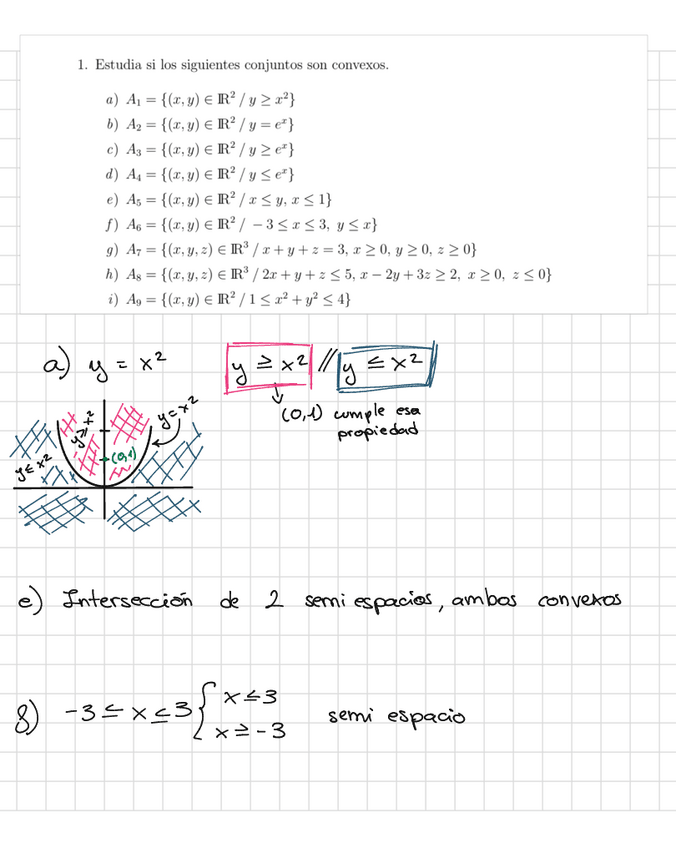 1. Estudia si los siguientes conjuntos son convexos.
a) A₁ = {(x, y) ∈ ℝ² / y ≥ x²}
b) A₂ = {(x, y) ∈ ℝ² / y = eˣ}
c) A₃ = {(x, y) ∈ ℝ² / y ≥ eˣ}
d) A₄ = {(x, y) ∈ ℝ² / y ≤ eˣ}
e) A₅ = {(x, y) ∈ ℝ² / x ≤ y, x ≤ 1}
f) A₆ = {(x, y) ∈ ℝ² / − 3 ≤ x ≤ 3, y ≤ x}
g) A₇ = {(x, y, z) ∈ ℝ³ / x + y + z = 3, x ≥ 0, y ≥ 0, z ≥ 0}
h) A₈ = {(x, y, z) ∈ ℝ³ / 2x + y + z ≤ 5, x − 2y + 3z ≥ 2, x ≥ 0, z ≤ 0}
i) A₉ = {(x, y) ∈ ℝ² / 1 ≤ x² + y² ≤ 4}
a) y = x² y ≥ x² // y ≤ x²
(0,1) cumple esa
propiedad
y ≥ x²
y = x²
(0,1)
y ≤ x²
e) Intersección de 2 semi espacios, ambos convexos
f) -3 ≤ x ≤ 3 { x ≤ 3
x ≥ -3
semi espacio